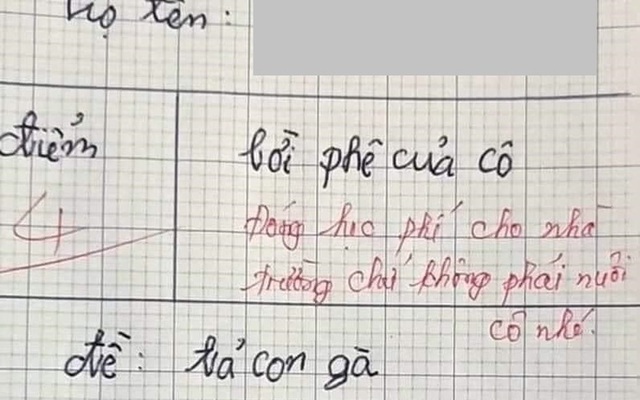 Họ tên:
điểm
lời phê của cô
4
Đóng học phí cho nhà
trường chứ không phải nuôi
cô nhé.
đề: tả con gà